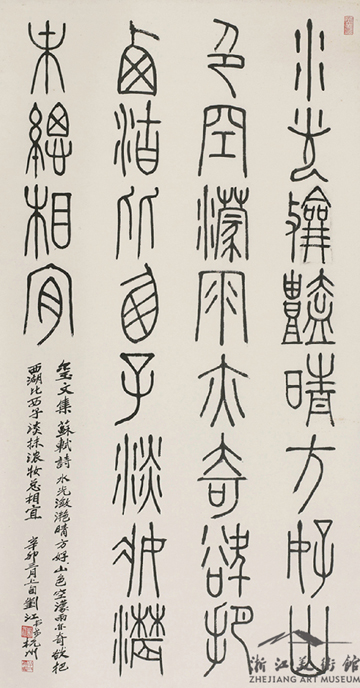 水光瀲灩晴方好山
色空濛雨亦奇欲把
西湖比西子淡妝濃
末總相宜
金文集蘇軾詩水光瀲灩晴方好山色空濛雨亦奇欲把
西湖比西子淡抹濃妝总相宜 辛卯三月上旬劉江 杭州
浙江美術館
ZHEJIANG ART MUSEUM